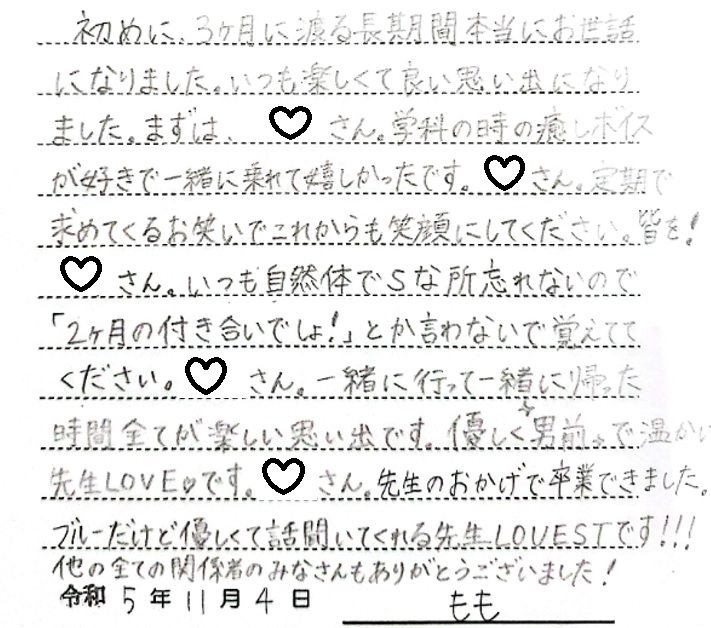 初めに、3ヶ月に渡る長期間本当にお世話
になりました。いつも楽しくて良い思い出になり
ました。まずは、♡さん。学科の時の癒しボイス
が好きで一緒に乗れて嬉しかったです。♡さん。定期で
求めてくるお笑いでこれからも笑顔にしてください。皆を!
♡さん。いつも自然体でSな所忘れないので
「2ヶ月の付き合いでしょ!」とか言わないで覚えてて
ください。♡さん。一緒に行って一緒に帰った
時間全てが楽しい思い出です。優しく男前で温かい
先生LOVE♡です。♡さん。先生のおかげで卒業できました。
ブルーだけど優しくて話聞いてくれる先生LOVESTです!!!
他の全ての関係者のみなさんもありがとうございました!
令和5年11月4日 もも